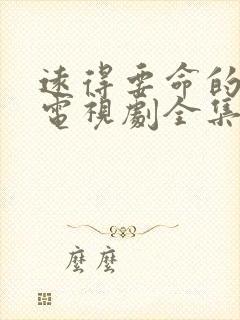 遠得要命的
電視劇全集
麼麼